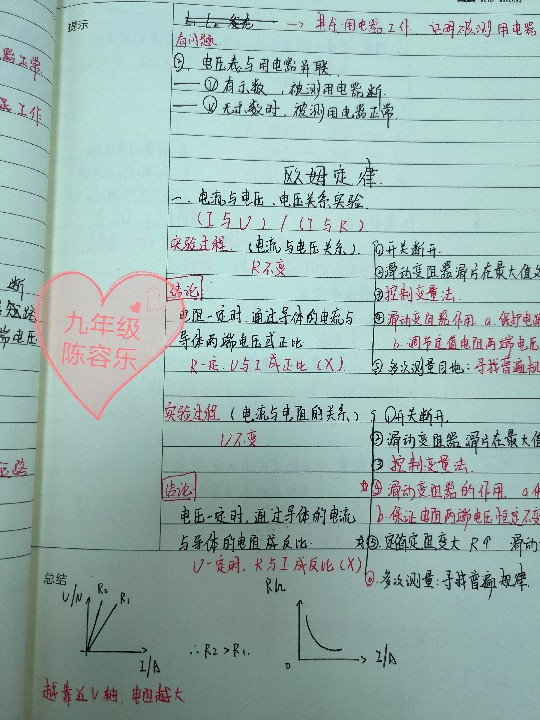 提示
→ 其余用电器工作 证明被测用电器
有问题
②. 电压表与用电器并联.
① 有示数, 被测用电器断.
② 无示数时, 被测用电器正常.
器正常.
工作
断
端电压
欧姆定律.
一. 电流与电压、电压关系实验.
(I与U) / (I与R)
实验过程 (电流与电压关系)
R不变
①开关断开.
②滑动变阻器滑片在最大值
③控制变量法.
④滑动变阻器作用 a.保护电路
b.调节定值电阻两端电压
⑤多次测量目地:寻找普遍规
结论
电阻一定时,通过导体的电流与
导体两端电压成正比
R一定,U与I成正比(X)
九年级
陈容乐
实验过程 (电流与电阻的关系)
U不变
①开关断开.
②滑动变阻器滑片在最大值
③控制变量法.
④滑动变阻器的作用. a.保
b.保证电阻两端电压恒定不变
⑤.定值电阻变大 R↑ 滑动
⑥.多次测量:寻找普遍规律.
结论
电压一定时,通过导体的电流
与导体的电阻成反比.
U一定时,R与I成反比(X)
总结
U/V R2 R1
I/A
∴R2>R1.
R/Ω
0 I/A
越靠近U轴,电阻越大